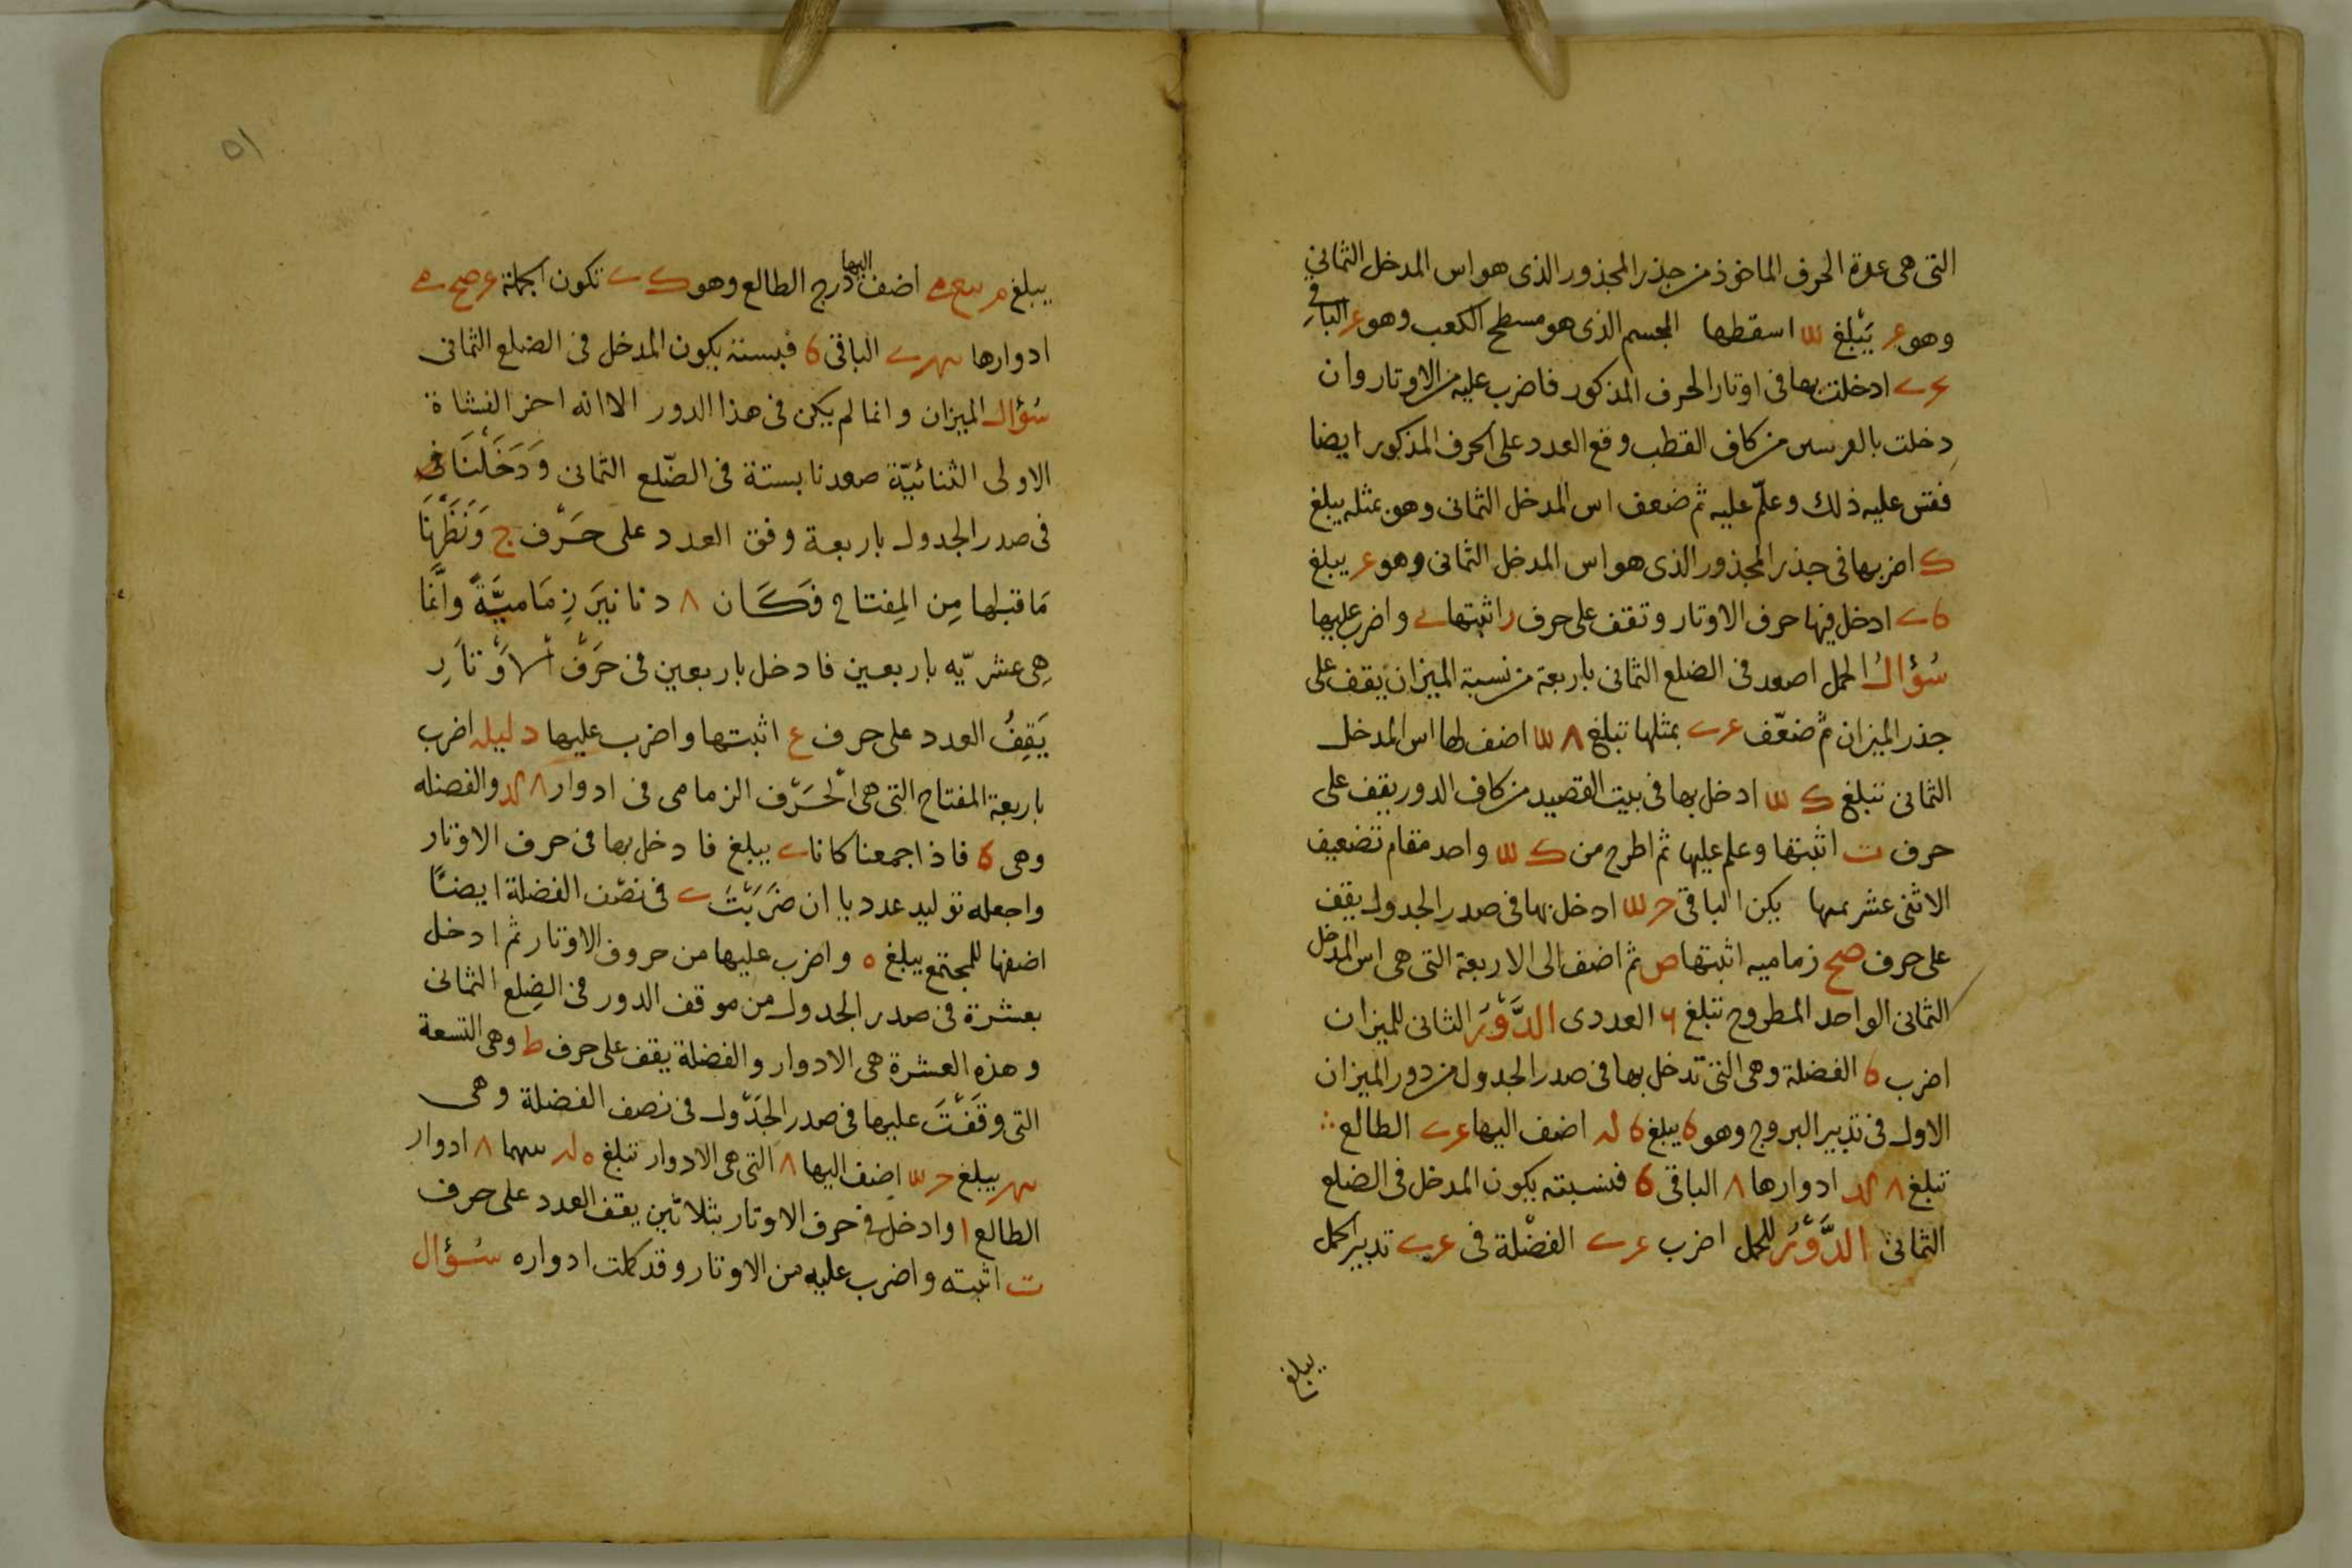 التى هى عدة الحرف الماخوذ من جذر المجذور الذى هو اس المدخل الثمانى
وهو يَبْلغ اسقطها المجسم الذى هو مسطح الكعب وهو الباقى
ادخلت بها فى اوتار الحرف المذكور فاضرب عليه من الاوتار وان
دخلت من كاف القطب وقع العدد على الحرف المذكور ايضا
ففتش عليه ذلك وعلّم عليه ثم ضعف اس المدخل الثمانى وهو بمثله يبلغ
ك اضربها فى جذر المجذور الذى هو اس المدخل الثمانى وهو يبلغ
ادخل فيها حرف الاوتار وتقف على حرف ر اثبتها واضرب عليها
سُؤال الحمل اصعد فى الضلع الثمانى باربعة من نسبة الميزان يقف على
جذر الميزان ثم ضعّف بمثلها تبلغ اضف لها اس المدخل
الثمانى تبلغ ادخل بها فى بيت القصيد من كاف الدور يقف على
حرف ت اثبتها وعلم عليها ثم اطرح من واحد مقام تضعيف
الاثنى عشر يكن الباقى ادخل بها فى صدر الجدول يقف
على حرف صح زماميه اثبتها ص ثم اضف الى الاربعة التى هى اس المدخل
الثمانى الواحد المطروح تبلغ العددى الدَّوْر الثانى للميزان
اضرب 6 الفضلة وهى التى تدخل بها فى صدر الجدول من دور الميزان
الاول فى تدبير البروج وهو 6 يبلغ اضف اليها الطالع
تبلغ ادوارها ٨ الباقى 6 فنسبته يكون المدخل فى الضلع
الثمانى الدَّوْر للحمل اضرب الفضْلة فى تدبير الحمل
يبلغ
٥١
يبلغ اضف اليها درج الطالع وهو تكون الجملة
ادوارها الباقى 6 فبستة يكون المدخل فى الضلع الثمانى
سُؤال الميزان وانما لم يكن فى هذا الدور الا انه اخر النشاة
الاولى الثنائيّة صعدنا بستة فى الضّلع الثمانى وَدَخَلْنَا فى
فى صدر الجدول باربعة وفق العدد على حَرْف ج وَنَظَرْنَا
مَا قبلها مِن المِفتاح فَكَان ٨ دنانيَر زِمَاميَّةً وانَّمَا
هِى عشريّه باربعين فادخل باربعين فى حَرْف الاَوْتاَرِ
يَقِفُ العدد على حرف ع اثبتها واضرب عليها دليله اضرب
باربعة المفتاح التى هى الْحَرْف الزمامى فى ادوار ٨ والفضله
وهى 6 فاذا جمعنا كانا يبلغ فادخل بها فى حرف الاوتار
واجعله توليد عدد يا ان ضَرَبْتَ فى نصْف الفضلة ايضًا
اضفها للمجتمع يبلغ ٥ واضرب عليها من حروف الاوتار ثم ادخل
بعشرة فى صدر الجدول من موقف الدور فى الضِلع الثمانى
وهذه العشرة هى الادوار والفضلة يقف على حرف ط وهى التسعة
التى وقَفْتَ عليها فى صدر الجَدْول فى نصف الفضلة وهى
يبلغ اضف اليها ٨ التى هى الادوار تبلغ ٨ ادوار
الطالع ا وادخل فى حرف الاوتار بثلاثين يقف العدد على حرف
ت اثبته واضرب عليه من الاوتار وقد كملت ادواره سُؤال